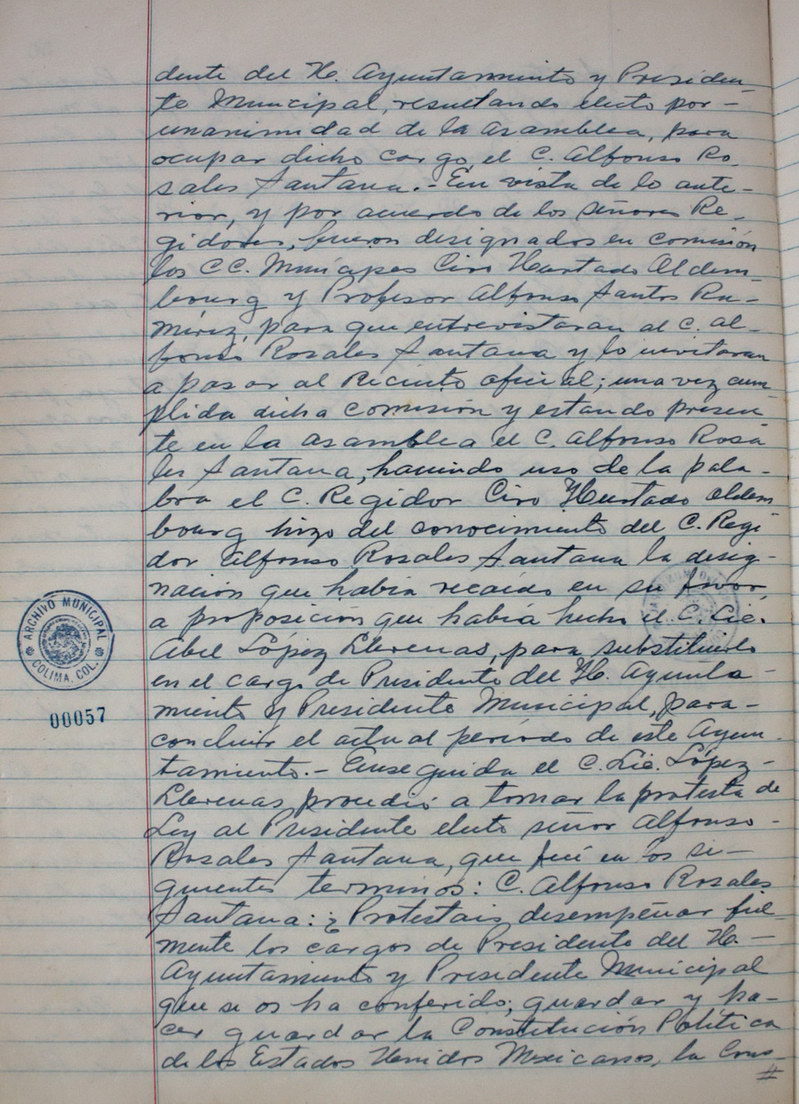 dente del H. Ayuntamiento y Presiden-
te Municipal, resultando electo por-
unanimidad de la asamblea, para
ocupar dicho cargo, el C. Alfonso Ro-
sales Santana.- En vista de lo ante-
rior, y por acuerdo de los señores Re-
gidores, fueron designados en comisión
los C.C. Munícipes Ciro Hurtado Aldem-
bourg y Profesor Alfonso Santos Ra-
mírez, para que entrevistaran al C. Al-
fonso Rosales Santana y lo invitaran
a pasar al Recinto oficial; una vez cum-
plida dicha comisión y estando presen-
te en la asamblea el C. Alfonso Rosa
les Santana, haciendo uso de la pala-
bra el C. Regidor Ciro Hurtado Aldem
bourg hizo del conocimiento del C. Regi-
dor Alfonso Rosales Santana la desig-
nación que había recaído en su favor,
a proposición que había hecho el C. Lic.
Abel López Llerenas, para substituirlo
en el cargo de Presidente del H. Ayunta-
miento y Presidente Municipal, para-
concluir el actual período de este Ayun-
tamiento.- Enseguida el C. Lic. López-
Llerenas, procedió a tomar la protesta de
Ley al Presidente electo señor Alfonso-
Rosales Santana, que fué en los si-
guientes terminos: C. Alfonso Rosales
Santana: ¿Protestais desempeñar fiel
mente los cargos de Presidente del H.-
Ayuntamiento y Presidente Municipal
que se os ha conferido; guardar y ha-
cer guardar la Constitución Política
de los Estados Unidos Mexicanos, la Cons-
#
ARCHIVO MUNICIPAL
COLIMA, COL.
00057